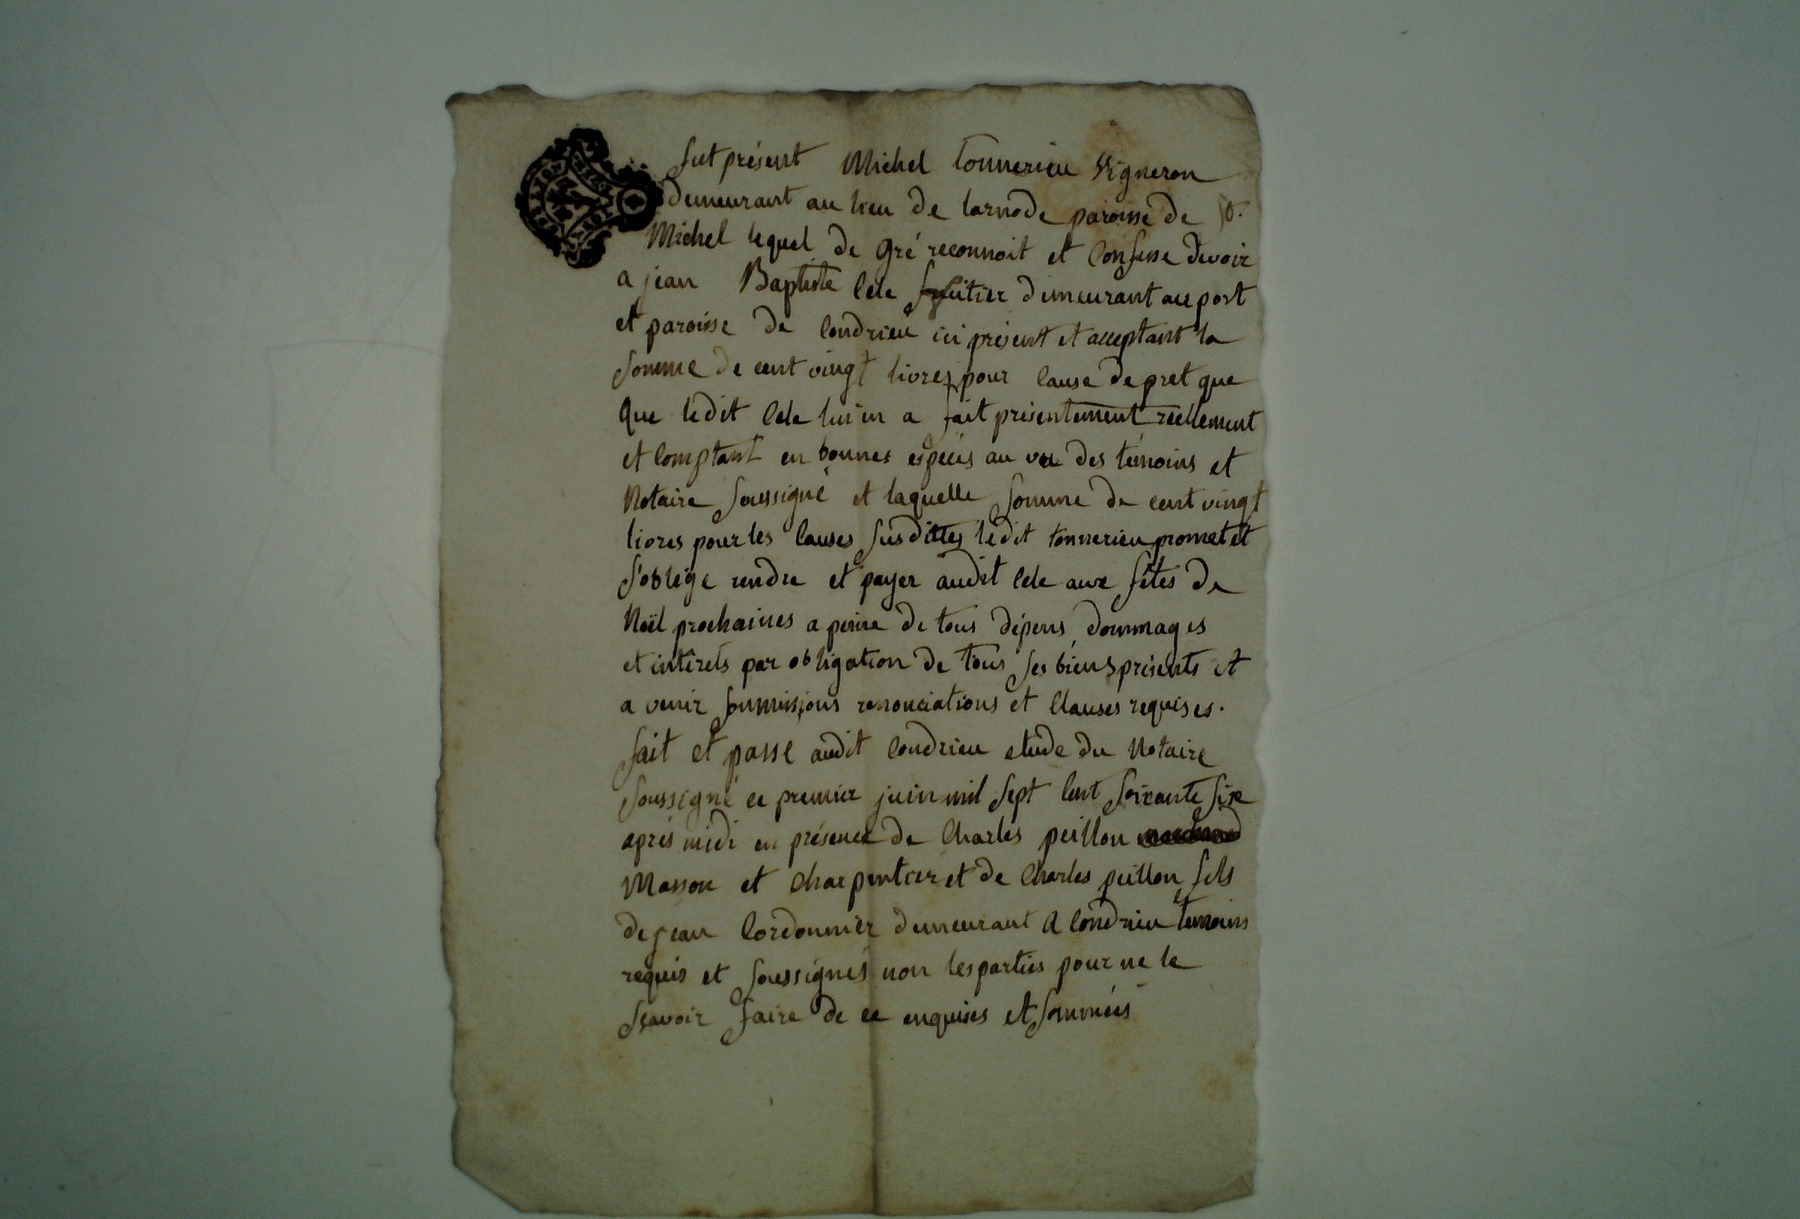 fut présent Michel tonnerieu Vigneron
Demeurant au lieu De larnode paroisse De St.
Michel lequel de gré reconnoit et Confesse Devoir
a jean Baptiste Cele fruitier Demeurant au port
et paroisse De Condrieu ici présent et acceptant la
Somme De cent vingt livres pour Cause De pret que
Que ledit Cele lui en a fait présentement réellement
et Comptant en bonnes espèces au vu Des témoins et
Notaire Soussigné et laquelle Somme De cent vingt
livres pour les Causes Susdittes ledit tonnerieu promet et
S'oblige rendre et payer audit Cele aux fêtes De
Noël prochaines a peine De tous Dépens Dommages
et intérets par obligation De tous ses biens présents et
a venir Soumissions renonciations et Clauses requises.
fait et passé audit Condrieu etude Du Notaire
Soussigné ce premier juin mil Sept Cent Soixante Six
après midi en présence De Charles peillon
Masson et Charpentier et De Charles peillon fils
De jean Cordonnier Demeurant A Condrieu temoins
requis et Soussignés non les parties pour ne le
Sçavoir faire De ce enquises et Sommées